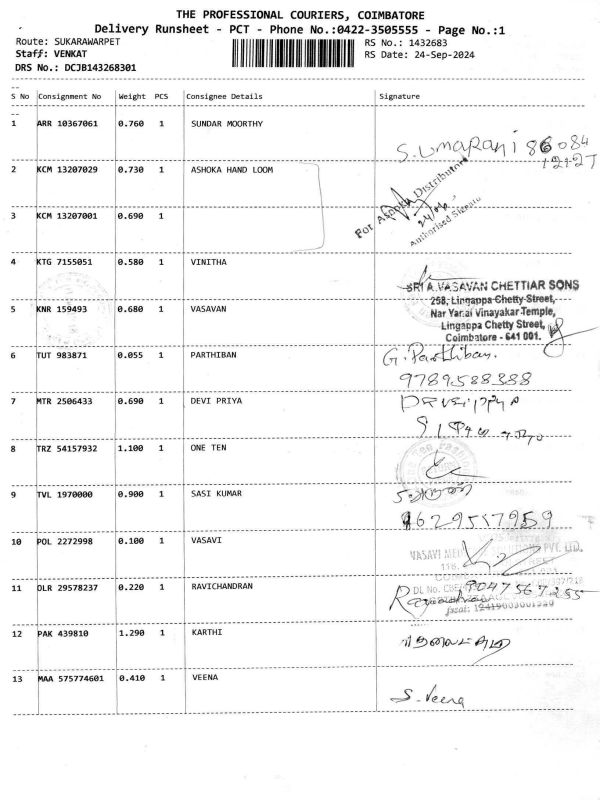 THE PROFESSIONAL COURIERS, COIMBATORE
Delivery Runsheet - PCT - Phone No.:0422-3505555 - Page No.:1
Route: SUKARAWARPET
RS No.: 1432683
Staff: VENKAT
RS Date: 24-Sep-2024
DRS No.: DCJB143268301
S No Consignment No Weight PCS Consignee Details Signature
1 ARR 10367061 0.760 1 SUNDAR MOORTHY
S. Umarani
2 KCM 13207029 0.730 1 ASHOKA HAND LOOM
For Ashoka Distributors
Authorised Signato
3 KCM 13207001 0.690 1
4 KTG 7155051 0.580 1 VINITHA
SRI A.VASAVAN CHETTIAR SONS
258, Lingappa Chetty Street,
5 KNR 159493 0.680 1 VASAVAN
Nar Yanai Vinayakar Temple,
Lingappa Chetty Street,
Coimbatore - 641 001.
6 TUT 983871 0.055 1 PARTHIBAN
G. Parthiban.
9789588388
7 MTR 2506433 0.690 1 DEVI PRIYA
8 TRZ 54157932 1.100 1 ONE TEN
9 TVL 1970000 0.900 1 SASI KUMAR
9629517959
10 POL 2272998 0.100 1 VASAVI
VASAVI PVT. LTD.
11 OLR 29578237 0.220 1 RAVICHANDRAN
9047567255
12 PAK 439810 1.290 1 KARTHI
13 MAA 575774601 0.410 1 VEENA
S. Veena